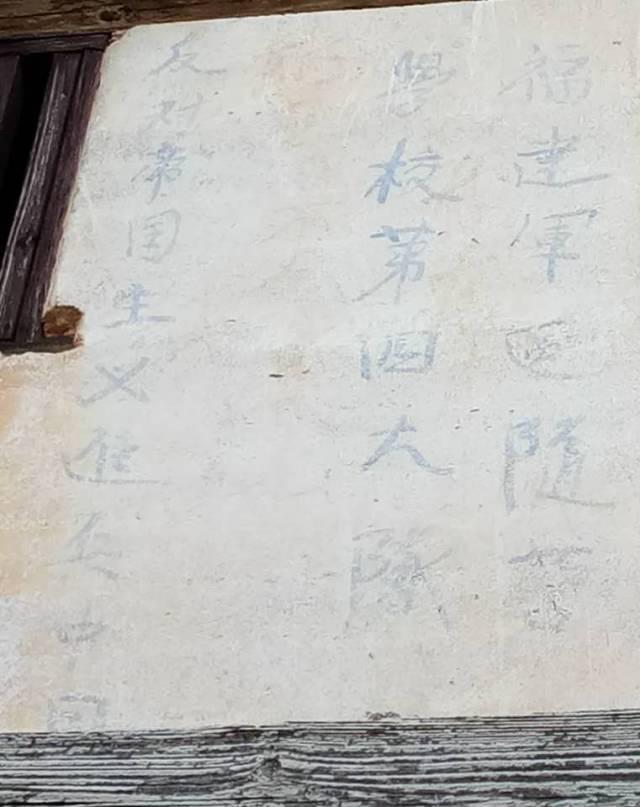 福建軍区随营
學校第四大隊
反对帝国主义進攻中国